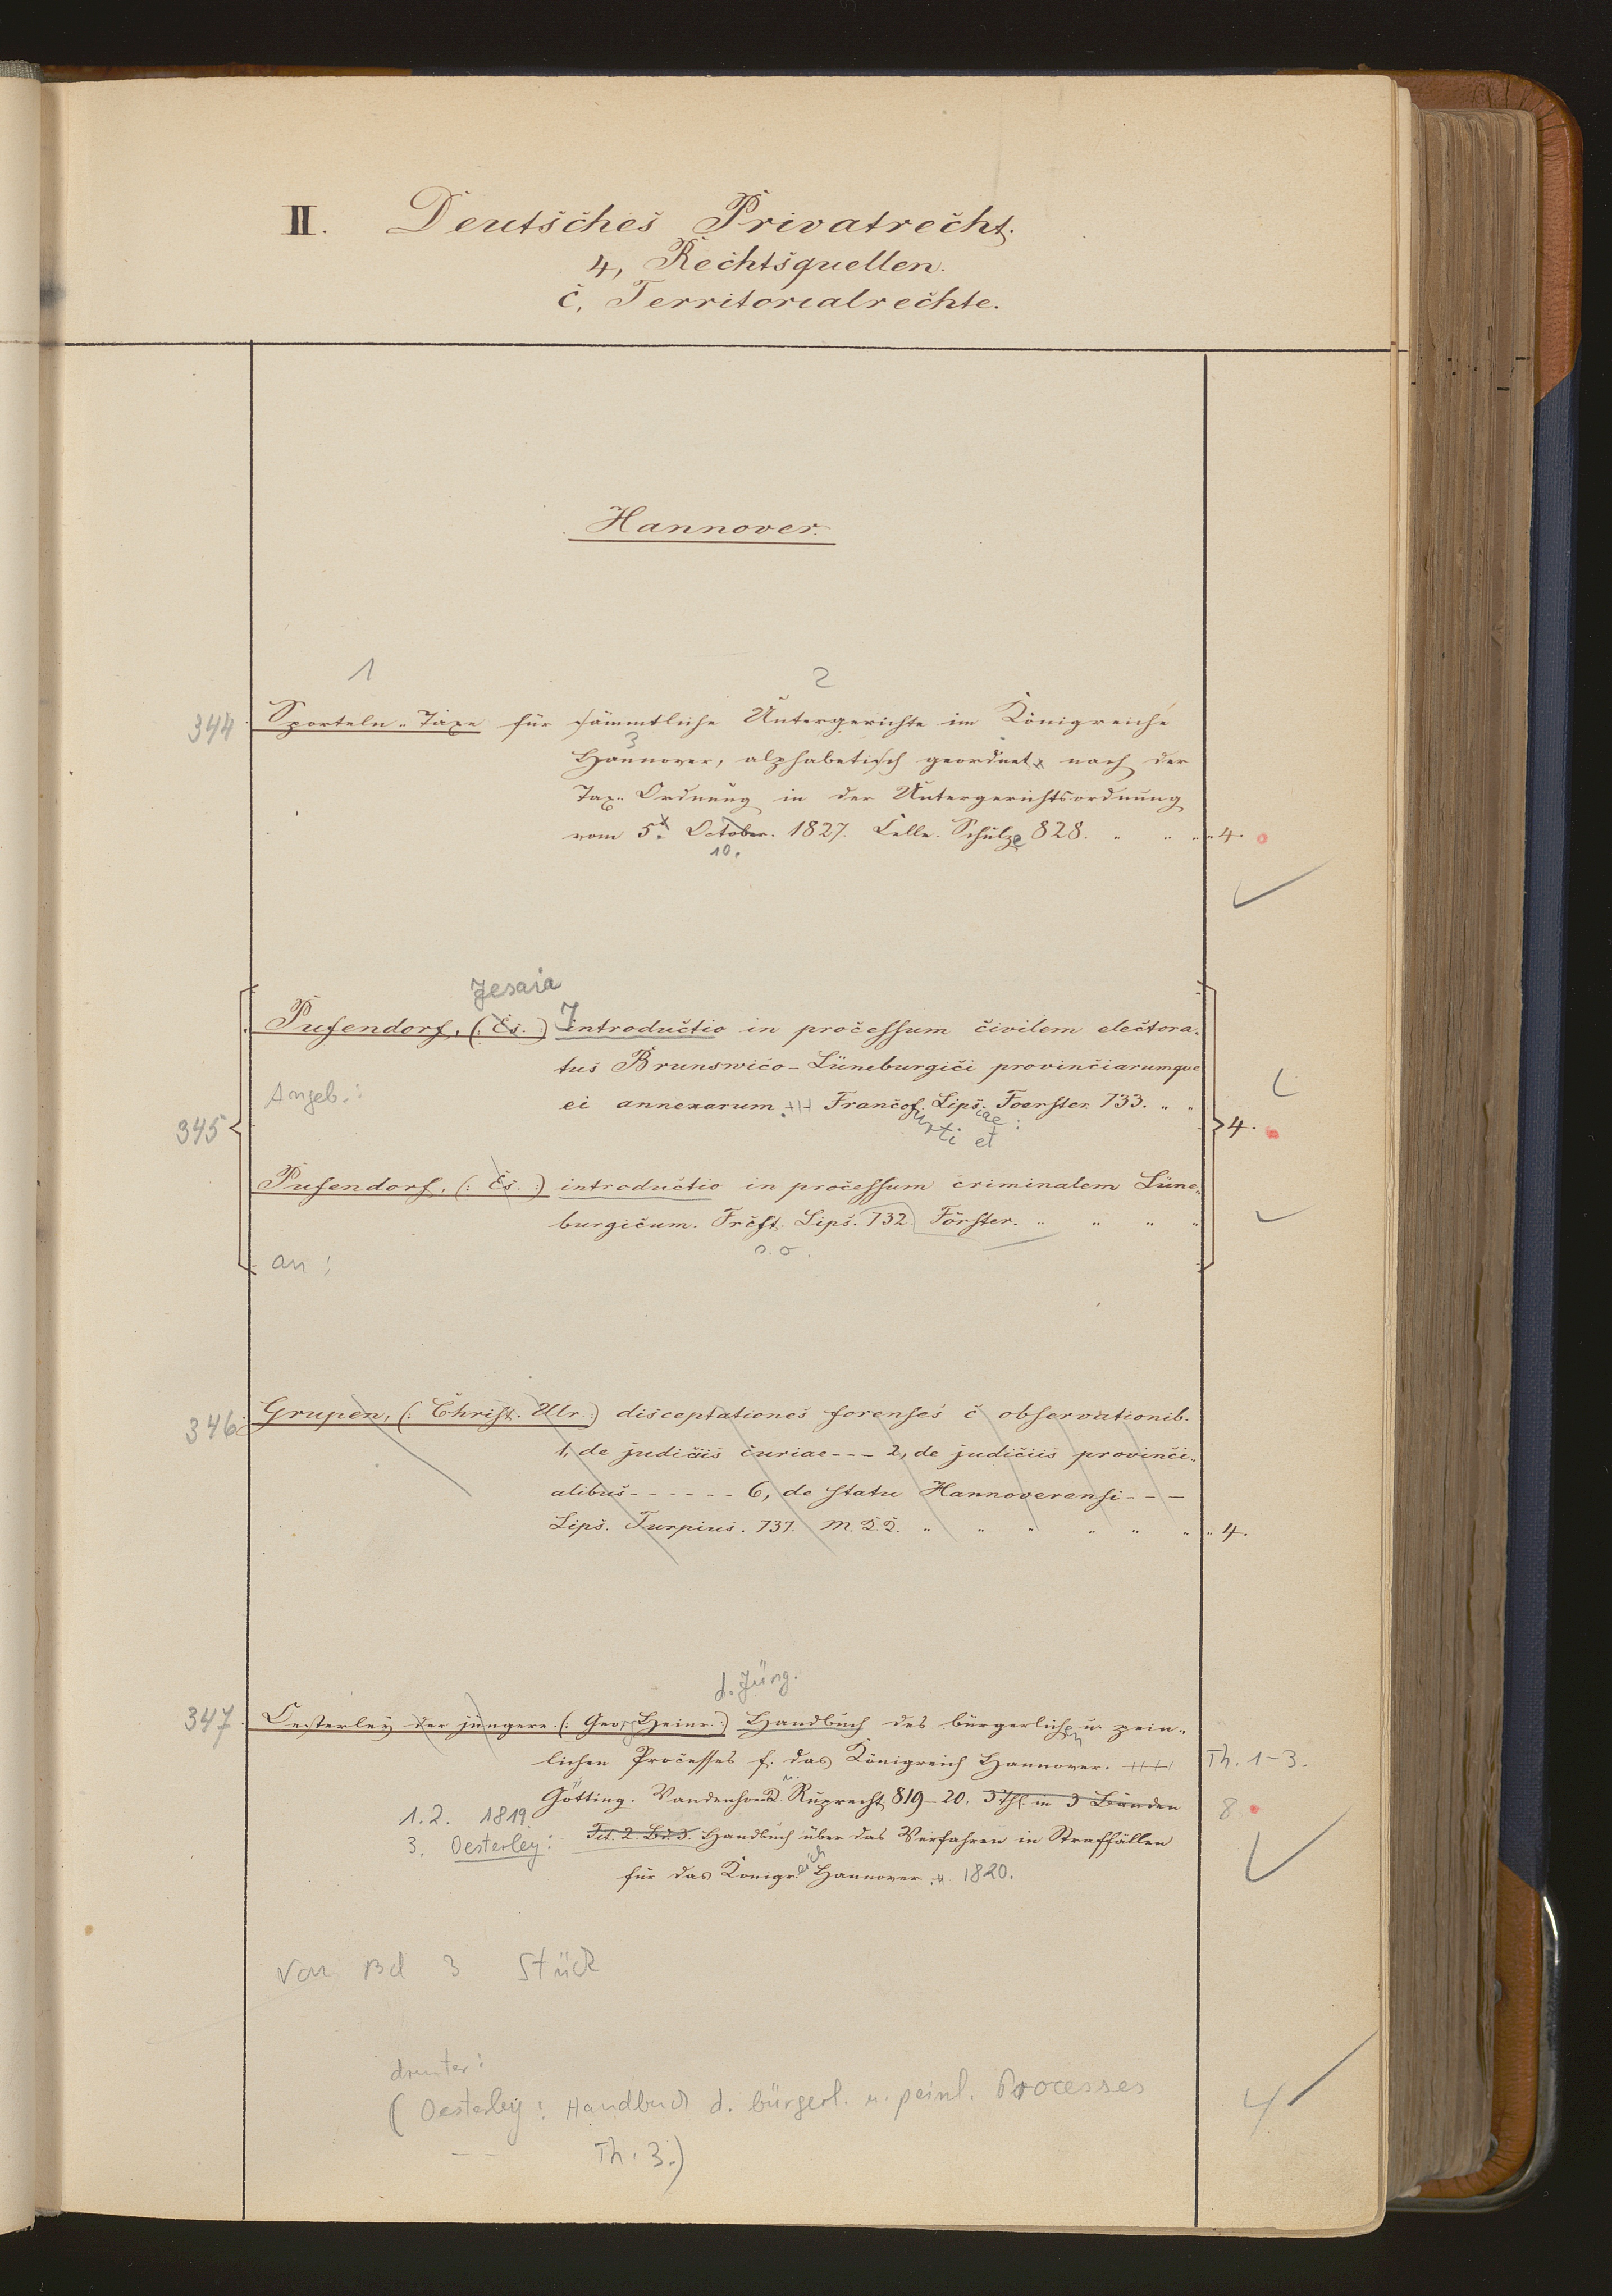 II. Deutsches Privatrecht.
4, Rechtsquellen.
c, Territorialrechte.
Hannover.
1 2
344 Sporteln-Taxe für sämmtliche Untergerichte im Königreiche
3
Hannover, alphabetisch geordnet nach der
Tax-Ordnung in der Untergerichtsordnung
vom 5t. October. 1827. Celle. Schulze 828. " " " 4.
10.
Jesaia
Pufendorf, (: Es. :) Introductio in processum civilem electora-
tus Brunswico-Lüneburgici provinciarumque
Angeb.: ei annexarum. +++ Francof. Lips. Foerster. 733. " "
urti et iae :
345 4.
Pufendorf, (: Es. :) introductio in processum criminalem Lüne-
burgicum. Frcft. Lips. 732. Förster. " " " "
s. o.
an:
346 Grupen, (: Christ. Ulr. :) disceptationes forenses c observationib.
1, de judiciis curiae --- 2, de judiciis provinci-
alibus ------ 6, de statu Hannoverensi ---
Lips. Turpius. 737. M. D. D. " " " " " " " 4.
d. Jüng.
347 Oesterley der jüngere (: Georg Heinr. :) Handbuch des bürgerlichen u. pein-
lichen Processes f. das Königreich Hannover. +++ Th. 1-3.
Götting. Vandenhoeck u. Ruprecht 819-20. 3 Thl. in 3 Bänden 8.
1. 2. 1819.
3. Oesterley: Tit. 2. Bd. 3. Handbuch über das Verfahren in Straffällen
für das Königreich Hannover. 1820.
Von Bd 3 Stück
drunter:
(Oesterley: Handbuch d. bürgerl. u. peinl. Processes 4
-- Th. 3.)